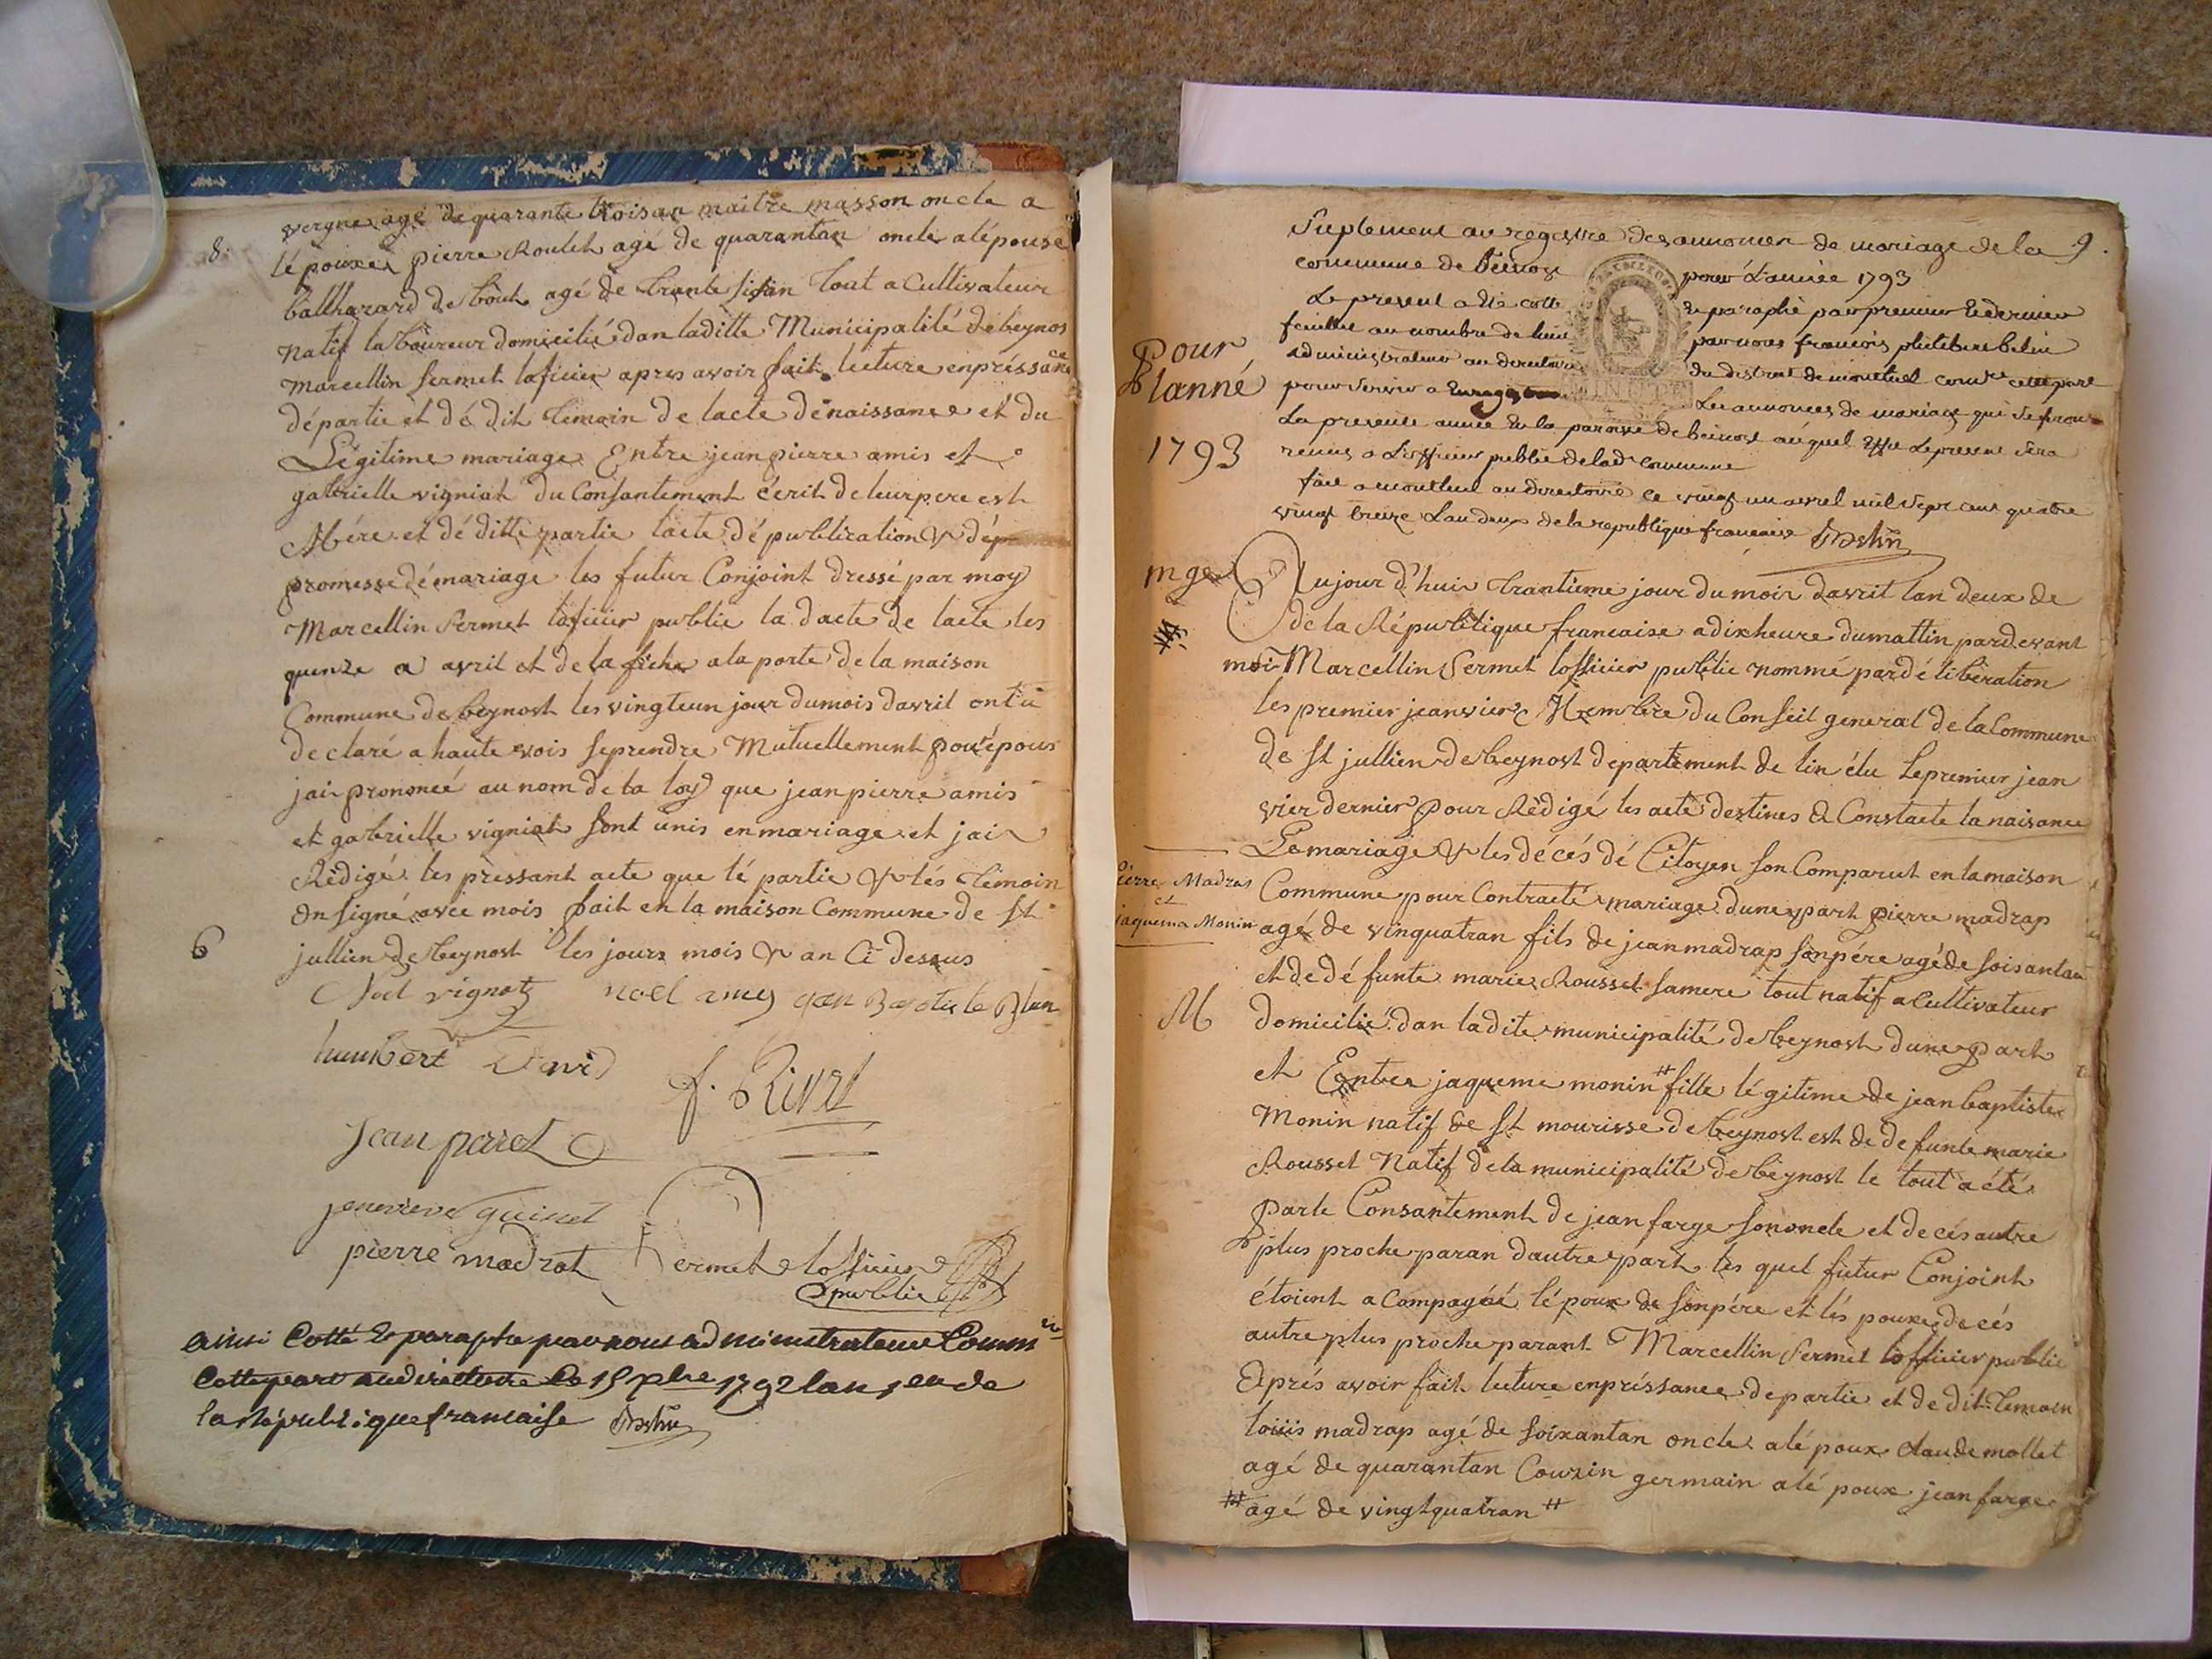 8.
vergne agé de quarante troisan maitre masson oncle a
lépouxe pierre Roulet agé de quarantan oncle alépouse
balthazard de bôut agé de trante sisan tout a Cultivateur
natif laboureur domicilié dan laditte Municipalité de beynos
Marcellin fermet laficier apres avoir fait lecture enpréssance
départie et dé dit temoin de lacte de naissance et du
Légitime mariage Entre jean pierre amis et
gabrielle vigniat du Consantement écrit de leur pere est
Mére et dé ditte partie lacte dé publication & dé
promesse dé mariage les futur Conjoint dressé par moy
Marcellin fermet laficier public la dacte de lacte les
quenze a avril et de lafiche a la porte de la maison
Commune de beynost les vingteun jour du mois davril ont
declaré a haute vois seprendre Mutuellement pour épous
jai prononcé au nom de la loy que jean pierre amis
et gabrielle vigniat sont unis en mariage et jai
Rédigé les pressant acte que lé partie & lés témoin
on signé avec mois fait en la maison Commune de St
6
jullien de beynost les jours mois & an Ci dessus
Noel vignat noel amy jean Baptiste Blan
humbert David
f. Rivet
jean perret
jenevieve guinet
pierre madrat fermet lofficier
public
ainsi Cotté & paraphé par nous administrateur Comm
Cette part au directoire le 15 xbre 1792 lan 1er de
la République francaise
Suplement au registre des annonces de mariage de la 9.
commune de beinost pour L'année 1793
Le present a été cotté & paraphé par premier & dernier
feuillet au nombre de huit par nous francois
administrateur au directoire du district de montluel comre cette part
pour servir a Les annonces de mariage qui se feront
La presente année en la paroisse de beinost auquel effet Le present sera
remis a Lofficier public de lad. commune
fait a montluel au directoire ce vingt un avril mil sept cent quatre
vingt treize Lan deux de la republique francaise
Pour
lanné
1793
mge
Aujour d'huis trantieme jour du mois davril lan deux de
de la République francaise a dix heure du mattin pardevant
moi Marcellin fermet lofficier public nommé par dé libération
les premier jeanvier Membre du Conseil general de la Commune
de St jullien de beynost departement de lin élu le premier jean
vier dernier pour Rédigé les acte destines a Constacte la naisance
Le mariage & les décés dé Citoyen son Comparut en la maison
Pierre Madras
et
jaquema Monin
Commune pour Contracté mariage dune part pierre madrap
agé de vinquatran fils de jean madrap son pére agé de soisantan
et de dé funte marie Rousset samere tout natif a Cultivateur
M
domicilié dan ladite municipalité de beynost dune part
et Entre jaqueme monin # fille légitime de jean baptiste
Monin natif de St mourisse de beynost est de defunte marie
Rousset Natif de la municipalité de beynost le tout a été
parle Consantement de jean farge son oncle et de cés autre
plus proche paran dautre part les quel futur Conjoint
étoient a Compagné lé poux de son pére et lés pouxe de cés
autre plus proche parant Marcellin fermet lofficier public
Aprés avoir fait lecture enpréssance departie et de dit temoin
louis madrap agé de soixantan oncle alé poux claude mollet
agé de quarantan Couzin germain alé poux jean farge
# agé de vingtquatran #